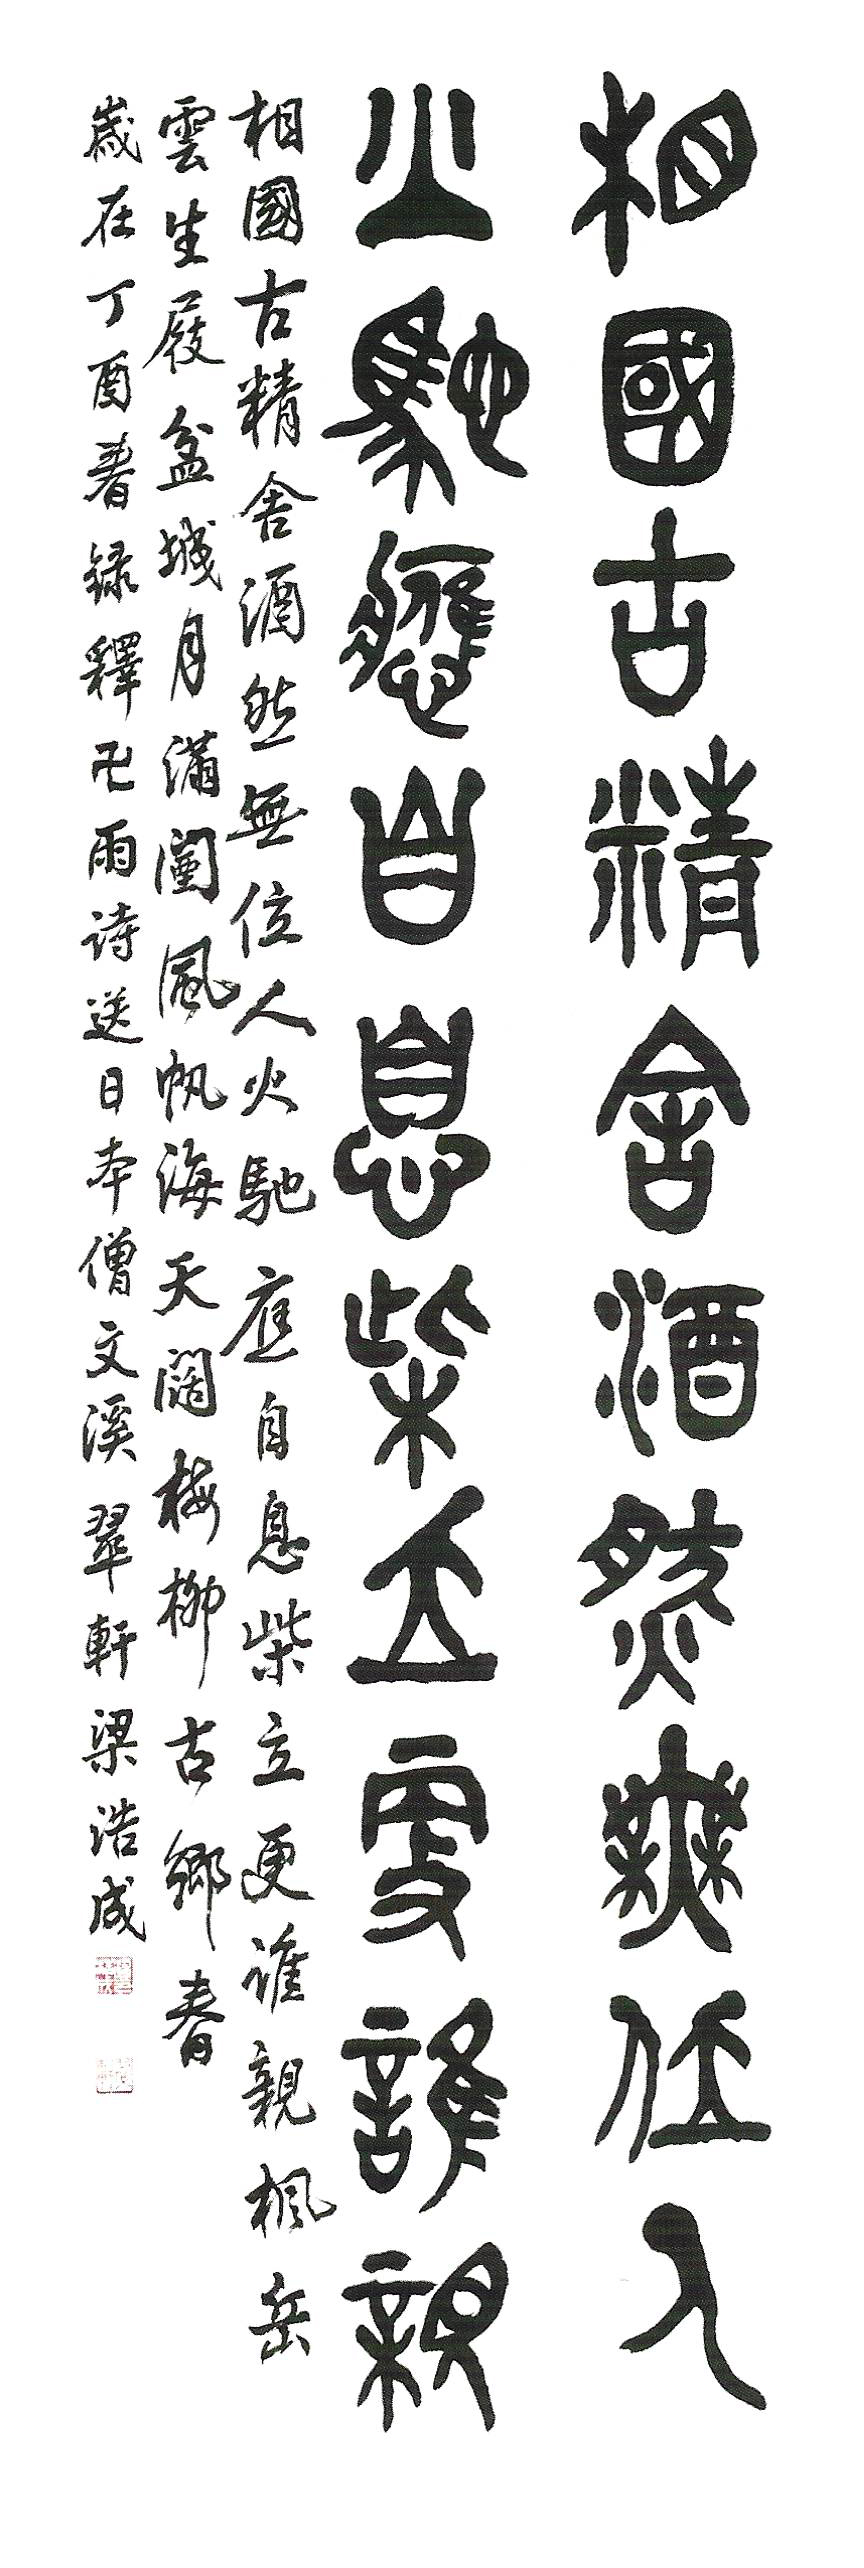 相國古精舍酒然無位人
火馳應自息柴立更誰親
相國古精舍酒然無位人火馳應自息柴立更誰親楓岳
雲生屐盆城月滿闉風帆海天闊梅柳古鄉春
歲在丁酉春録釋卍雨诗送日本僧文溪翠軒梁浩成